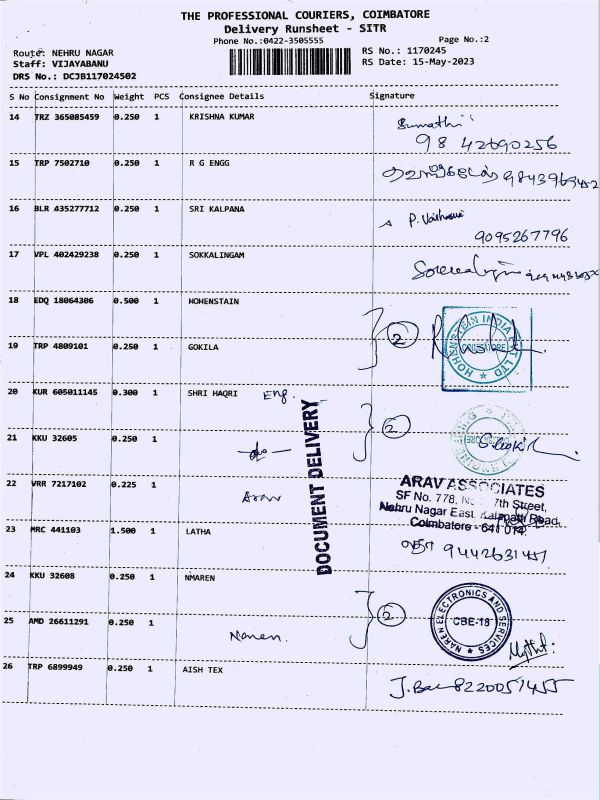 THE PROFESSIONAL COURIERS, COIMBATORE
Delivery Runsheet - SITR
Phone No.:0422-3505555
Page No.:2
Route: NEHRU NAGAR
Staff: VIJAYABANU
DRS No.: DCJB117024502
RS No.: 1170245
RS Date: 15-May-2023
S No Consignment No Weight PCS Consignee Details Signature
14 TRZ 365085459 0.250 1 KRISHNA KUMAR Sumathi
98 42690256
15 TRP 7502710 0.250 1 R G ENGG
16 BLR 435277712 0.250 1 SRI KALPANA
9095267796
17 VPL 402429238 0.250 1 SOKKALINGAM
18 EDQ 18064306 0.500 1 HOHENSTAIN
2
HOHENSTEIN INDIA PVT LTD
COIMBATORE
19 TRP 4809101 0.250 1 GOKILA
20 KUR 605011145 0.300 1 SHRI HAQRI Eng.
2
21 KKU 32605 0.250 1 -do-
DOCUMENT DELIVERY
22 VRR 7217102 0.225 1 Arav
ARAV ASSOCIATES
SF No. 778, 7th Street,
Nehru Nagar East, Kalapatti Road,
Coimbatore - 641 014.
23 MRC 441103 1.500 1 LATHA
9442631451
24 KKU 32608 0.250 1 NMAREN
2
NAREN ELECTRONICS AND SERVICES
CBE-18
25 AMD 26611291 0.250 1 Naren.
26 TRP 6899949 0.250 1 AISH TEX
8220051455